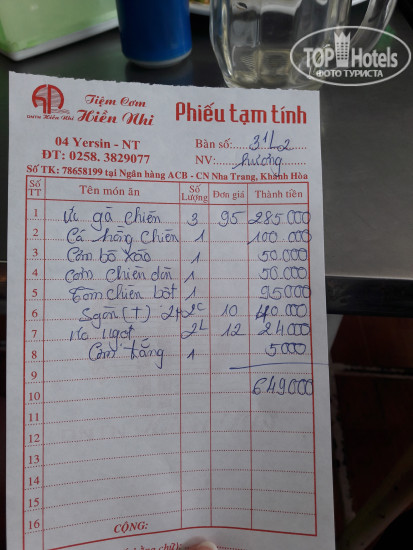 TOP Hotels
ФОТО ТУРИСТА
Tiệm Cơm
Hiền Nhi
Phiếu tạm tính
04 Yersin - NT
ĐT: 0258. 3829077
Bàn số: 31/2
NV: Hương
Số TK: 78658199 tại Ngân hàng ACB - CN Nha Trang, Khánh Hòa
Số TT Tên món ăn Số Lượng Đơn giá Thành tiền
1 Ức gà chiên 3 95 285.000
2 Cá hồng chiên 1 100.000
3 Cơm bò xào 1 50.000
4 Cơm chiên 1 50.000
5 Tôm chiên bột 1 95000
6 Sgòn (T) 10 40.000
7 ngọt 2L 12 24.000
8 Cơm trắng 1 5.000
9
10 649.000
11
12
13
14
15
16
CỘNG: